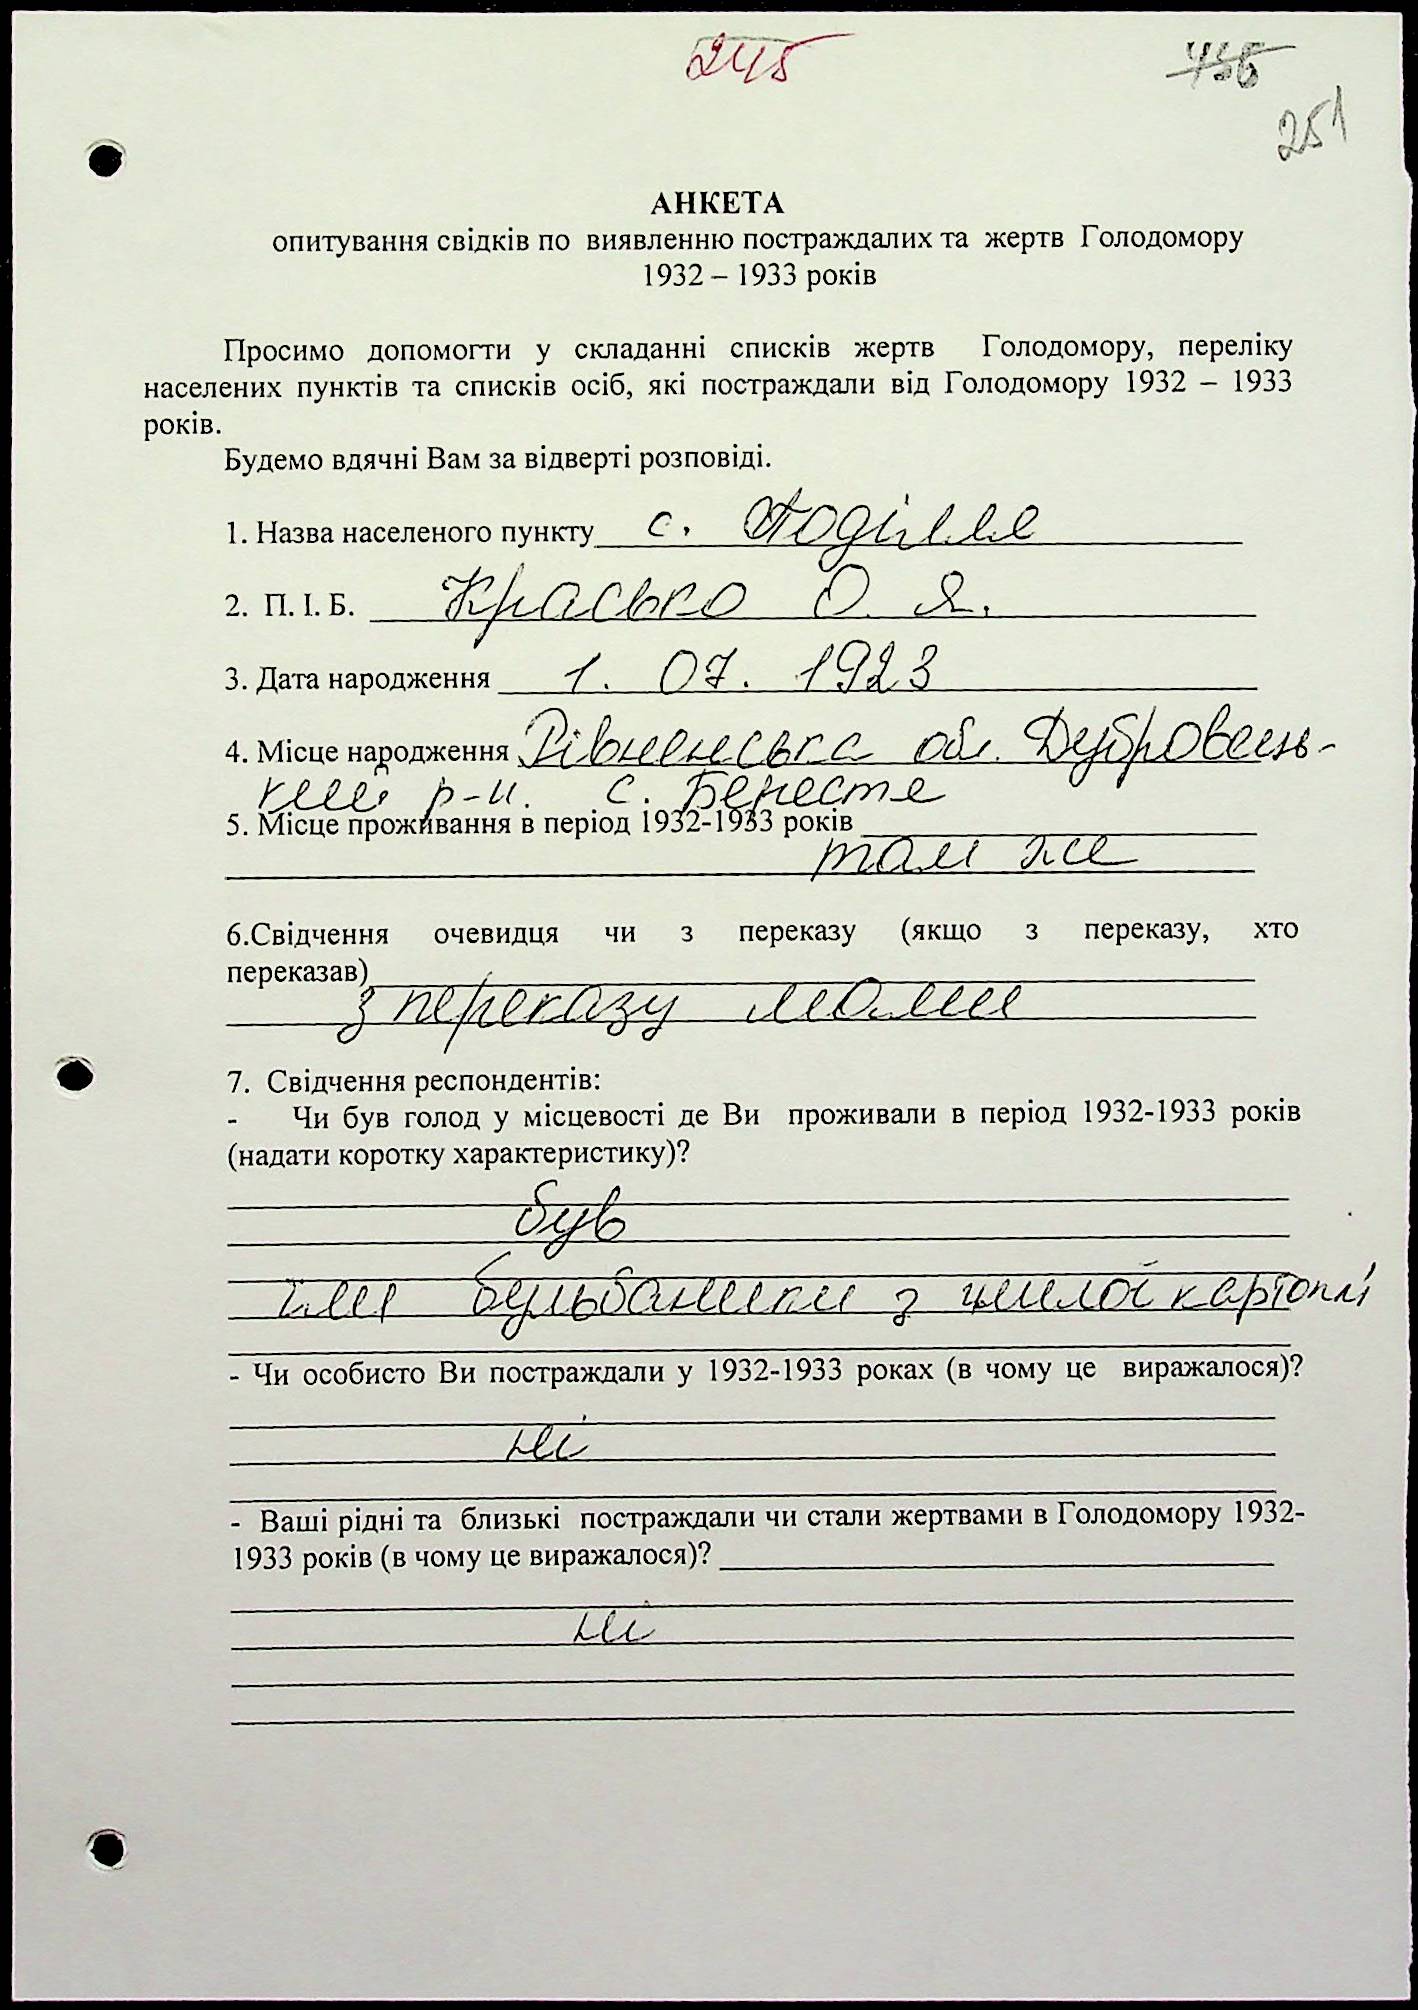 245
736
251
АНКЕТА
опитування свідків по виявленню постраждалих та жертв Голодомору
1932 – 1933 років
Просимо допомогти у складанні списків жертв Голодомору, переліку
населених пунктів та списків осіб, які постраждали від Голодомору 1932 – 1933
років.
Будемо вдячні Вам за відверті розповіді.
1. Назва населеного пункту с. Поділля
2. П. І. Б. Красько О. Я.
3. Дата народження 1. 07. 1923
4. Місце народження Рівненська обл. Дубровець-
кий р-н. с. Берестя
5. Місце проживання в період 1932-1933 років
там же
6.Свідчення очевидця чи з переказу (якщо з переказу, хто
переказав)
з переказу мами
7. Свідчення респондентів:
- Чи був голод у місцевості де Ви проживали в період 1932-1933 років
(надати коротку характеристику)?
був
їли бульбаники з гнилої картоплі
- Чи особисто Ви постраждали у 1932-1933 роках (в чому це виражалося)?
ні
- Ваші рідні та близькі постраждали чи стали жертвами в Голодомору 1932-
1933 років (в чому це виражалося)?
ні